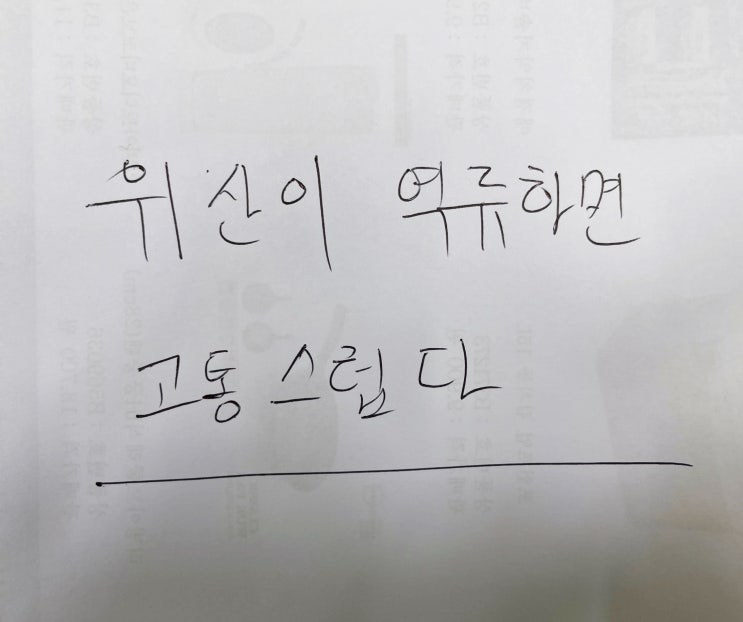 위산이 역류하면
고통스럽다